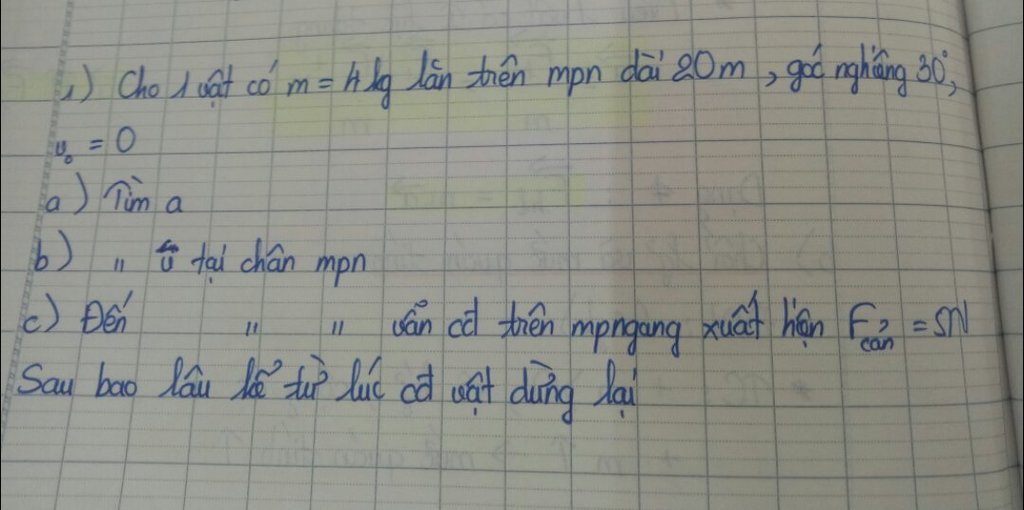 1) Cho 1 vật có m = 4 kg lăn trên mpn dài 20m, góc nghiêng 30°,
v₀ = 0
a) Tìm a
b) " v tại chân mpn
c) Đến " " vẫn cđ trên mpngang xuất hiện Fcản = 5N
Sau bao lâu kể từ lúc cđ vật dừng lại